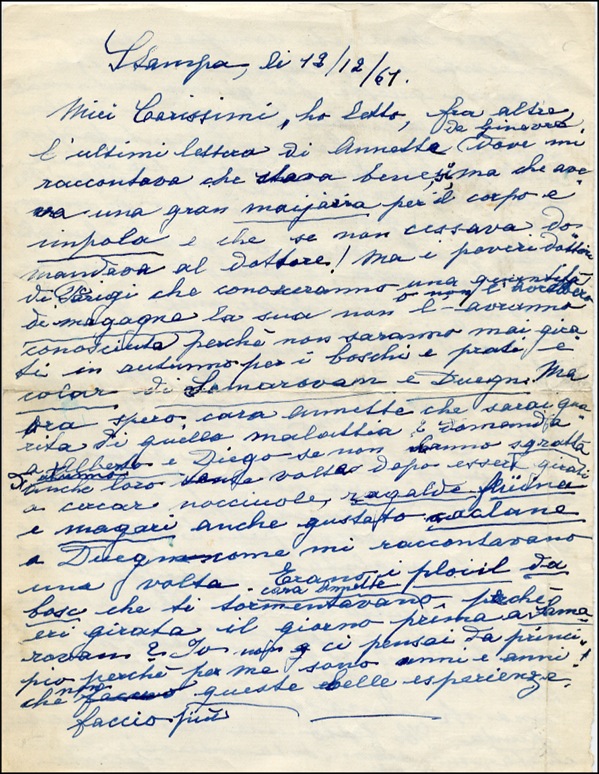 Stampa, li 12/12/61.
Miei Carissimi, ho letto, fra altre,
da Ginevra
l'ultimi lettera di Annetta dove mi
raccontava che stava bene, ma che ave
va una gran per il corpo e
impola e che se non cissava do
mandava al dottore! Ma i poveri dottori
di Parigi che conosceranno una quantità
o non l'avrebbero
di magagne la sua non l'avranno
conosciuta perchè non saranno mai gira
ti in autunno per i boschi e prati e
di Samarovam e Duegn. Ma
ora spero cara Annetta che sarai gua
rita di quella malattia e domanda
a Alberto e Diego se non hanno sgratta
D'autunno
anche loro volte dopo essere girati
a cercar nocciuole, ragalde
e magari anche gustato
a Duegn come mi raccontavano
una volta. Erano i ploiil da
cara Annetta
bosc che ti tormentavano perchè
eri girata il giorno prima a Sama
rovam? Io non ci pensai da princi
pio perchè per me sono anni e anni
che non queste belle esperienze.
faccio più